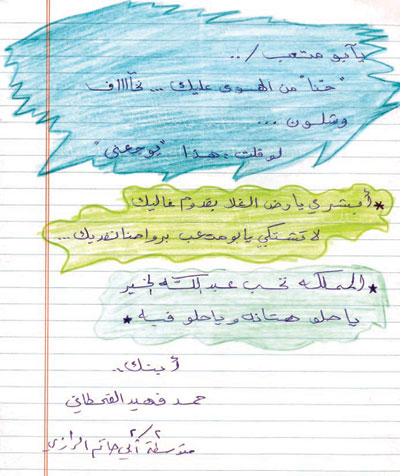 يا أبو متعب /..
"حنّا" من الهوى عليك ... نخآآآف
وشلون ...
لو قلت : هذا "يوجعني"
* أبشري يا رض الغلا بقدوم غاليك
لا تشتكي يا بو متعب برواحنا نفديك ...
* المملكه تحب عبد الله الخير
يا حلو هتانه ويا حلو فيه *
أبنك ..
حمد فهيد القحطاني
٢/٢
متوسطة أبي حاتم الرازي